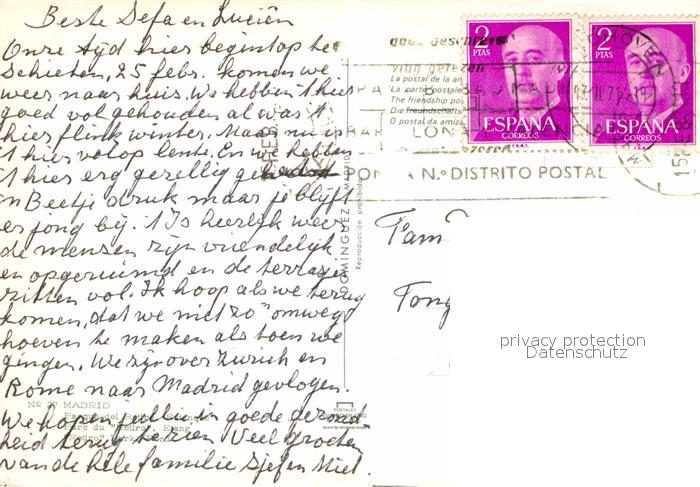 Beste Sefa en Luciën
Onze tijd hier begint op te
schieten, 25 febr. komen we
weer naar huis. We hebben 't hier
goed vol gehouden al was 't
hier flink winter. Maar nu is
't hier volop lente. En we hebben
't hier erg gezellig
'n Beetje druk maar je blijft
er jong bij. 't Is heerlijk weer
de mensen zijn vriendelijk
en opgeruimd en de terrasjes
zitten vol. Ik hoop als we terug
komen, dat we niet zo'n omweg
hoeven te maken als toen we
gingen. We zijn over Zurich en
Rome naar Madrid gevlogen.
We hopen jullie in goede gezond
heid terug te zien Veel groeten
van de hele familie Sjef en Miet.
Nº 27 MADRID
Parc du "Retiro" Etang
DOMINGUEZ MADRID
Reproducción prohibida
La postal de la am
La carte postale
The friendship po
Die Freundschafts
O postal da amiza
2 PTAS
ESPAÑA
CORREOS
2 PTAS
ESPAÑA
CORREOS
BARCELONA
PONGA N.º DISTRITO POSTAL
Fam
Tong
privacy protection
Datenschutz